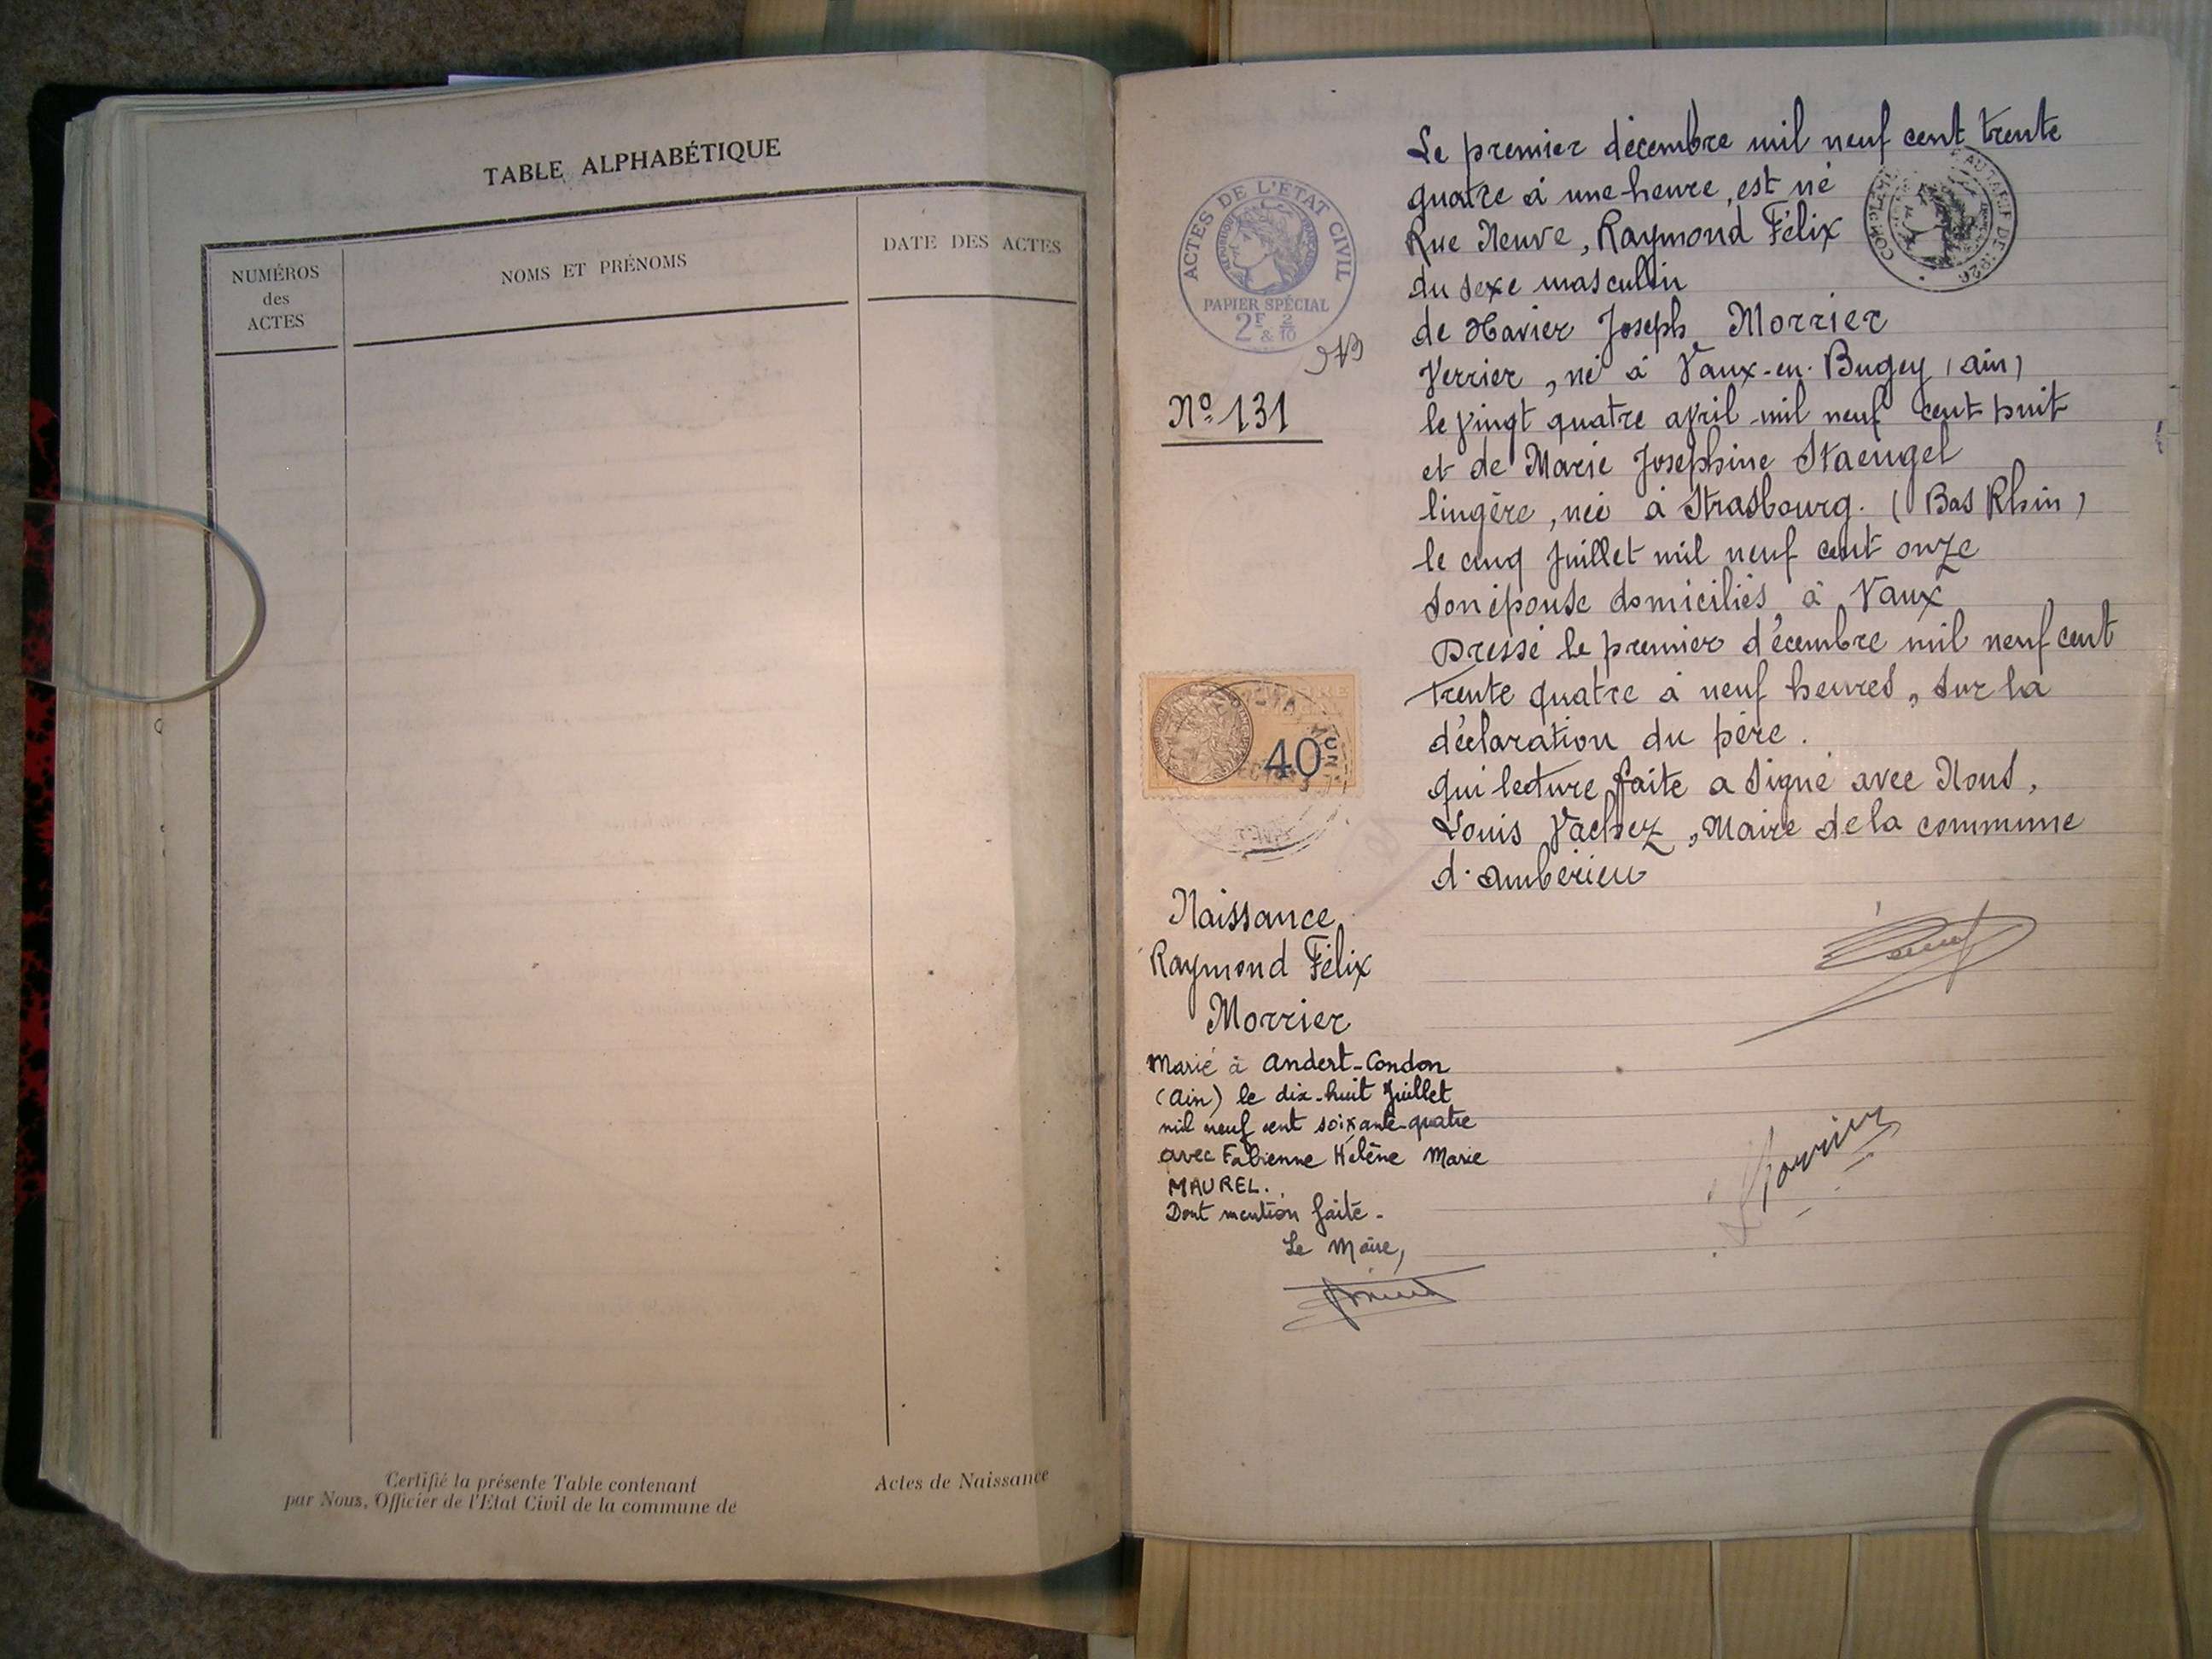 TABLE ALPHABÉTIQUE
NUMÉROS
des
ACTES
NOMS ET PRÉNOMS
DATE DES ACTES
Certifié la présente Table contenant
Actes de Naissance
par Nous, Officier de l'Etat Civil de la commune de
ACTES DE L'ETAT CIVIL
PAPIER SPÉCIAL
2F & 2/10
No 131
40c
Naissance
Raymond Félix
Morrier
Marié à Andert-Condon
(Ain) le dix-huit Juillet
mil neuf cent soixante-quatre
avec Fabienne Hélène Marie
MAUREL.
Dont mention faite.
Le Maire,
Le premier décembre mil neuf cent trente
quatre à une heure, est né
Rue Neuve, Raymond Félix
du sexe masculin
de Xavier Joseph Morrier
Verrier, né à Vaux-en-Bugey (Ain)
le vingt quatre avril mil neuf cent huit
et de Marie Joséphine Staengel
lingère, née à Strasbourg. (Bas Rhin)
le cinq Juillet mil neuf cent onze
son épouse domiciliés à Vaux
Dressé le premier décembre mil neuf cent
trente quatre à neuf heures, sur la
déclaration du père.
qui lecture faite a signé avec Nous,
Louis Vachez, Maire de la commune
d'Ambérieu
Morrier